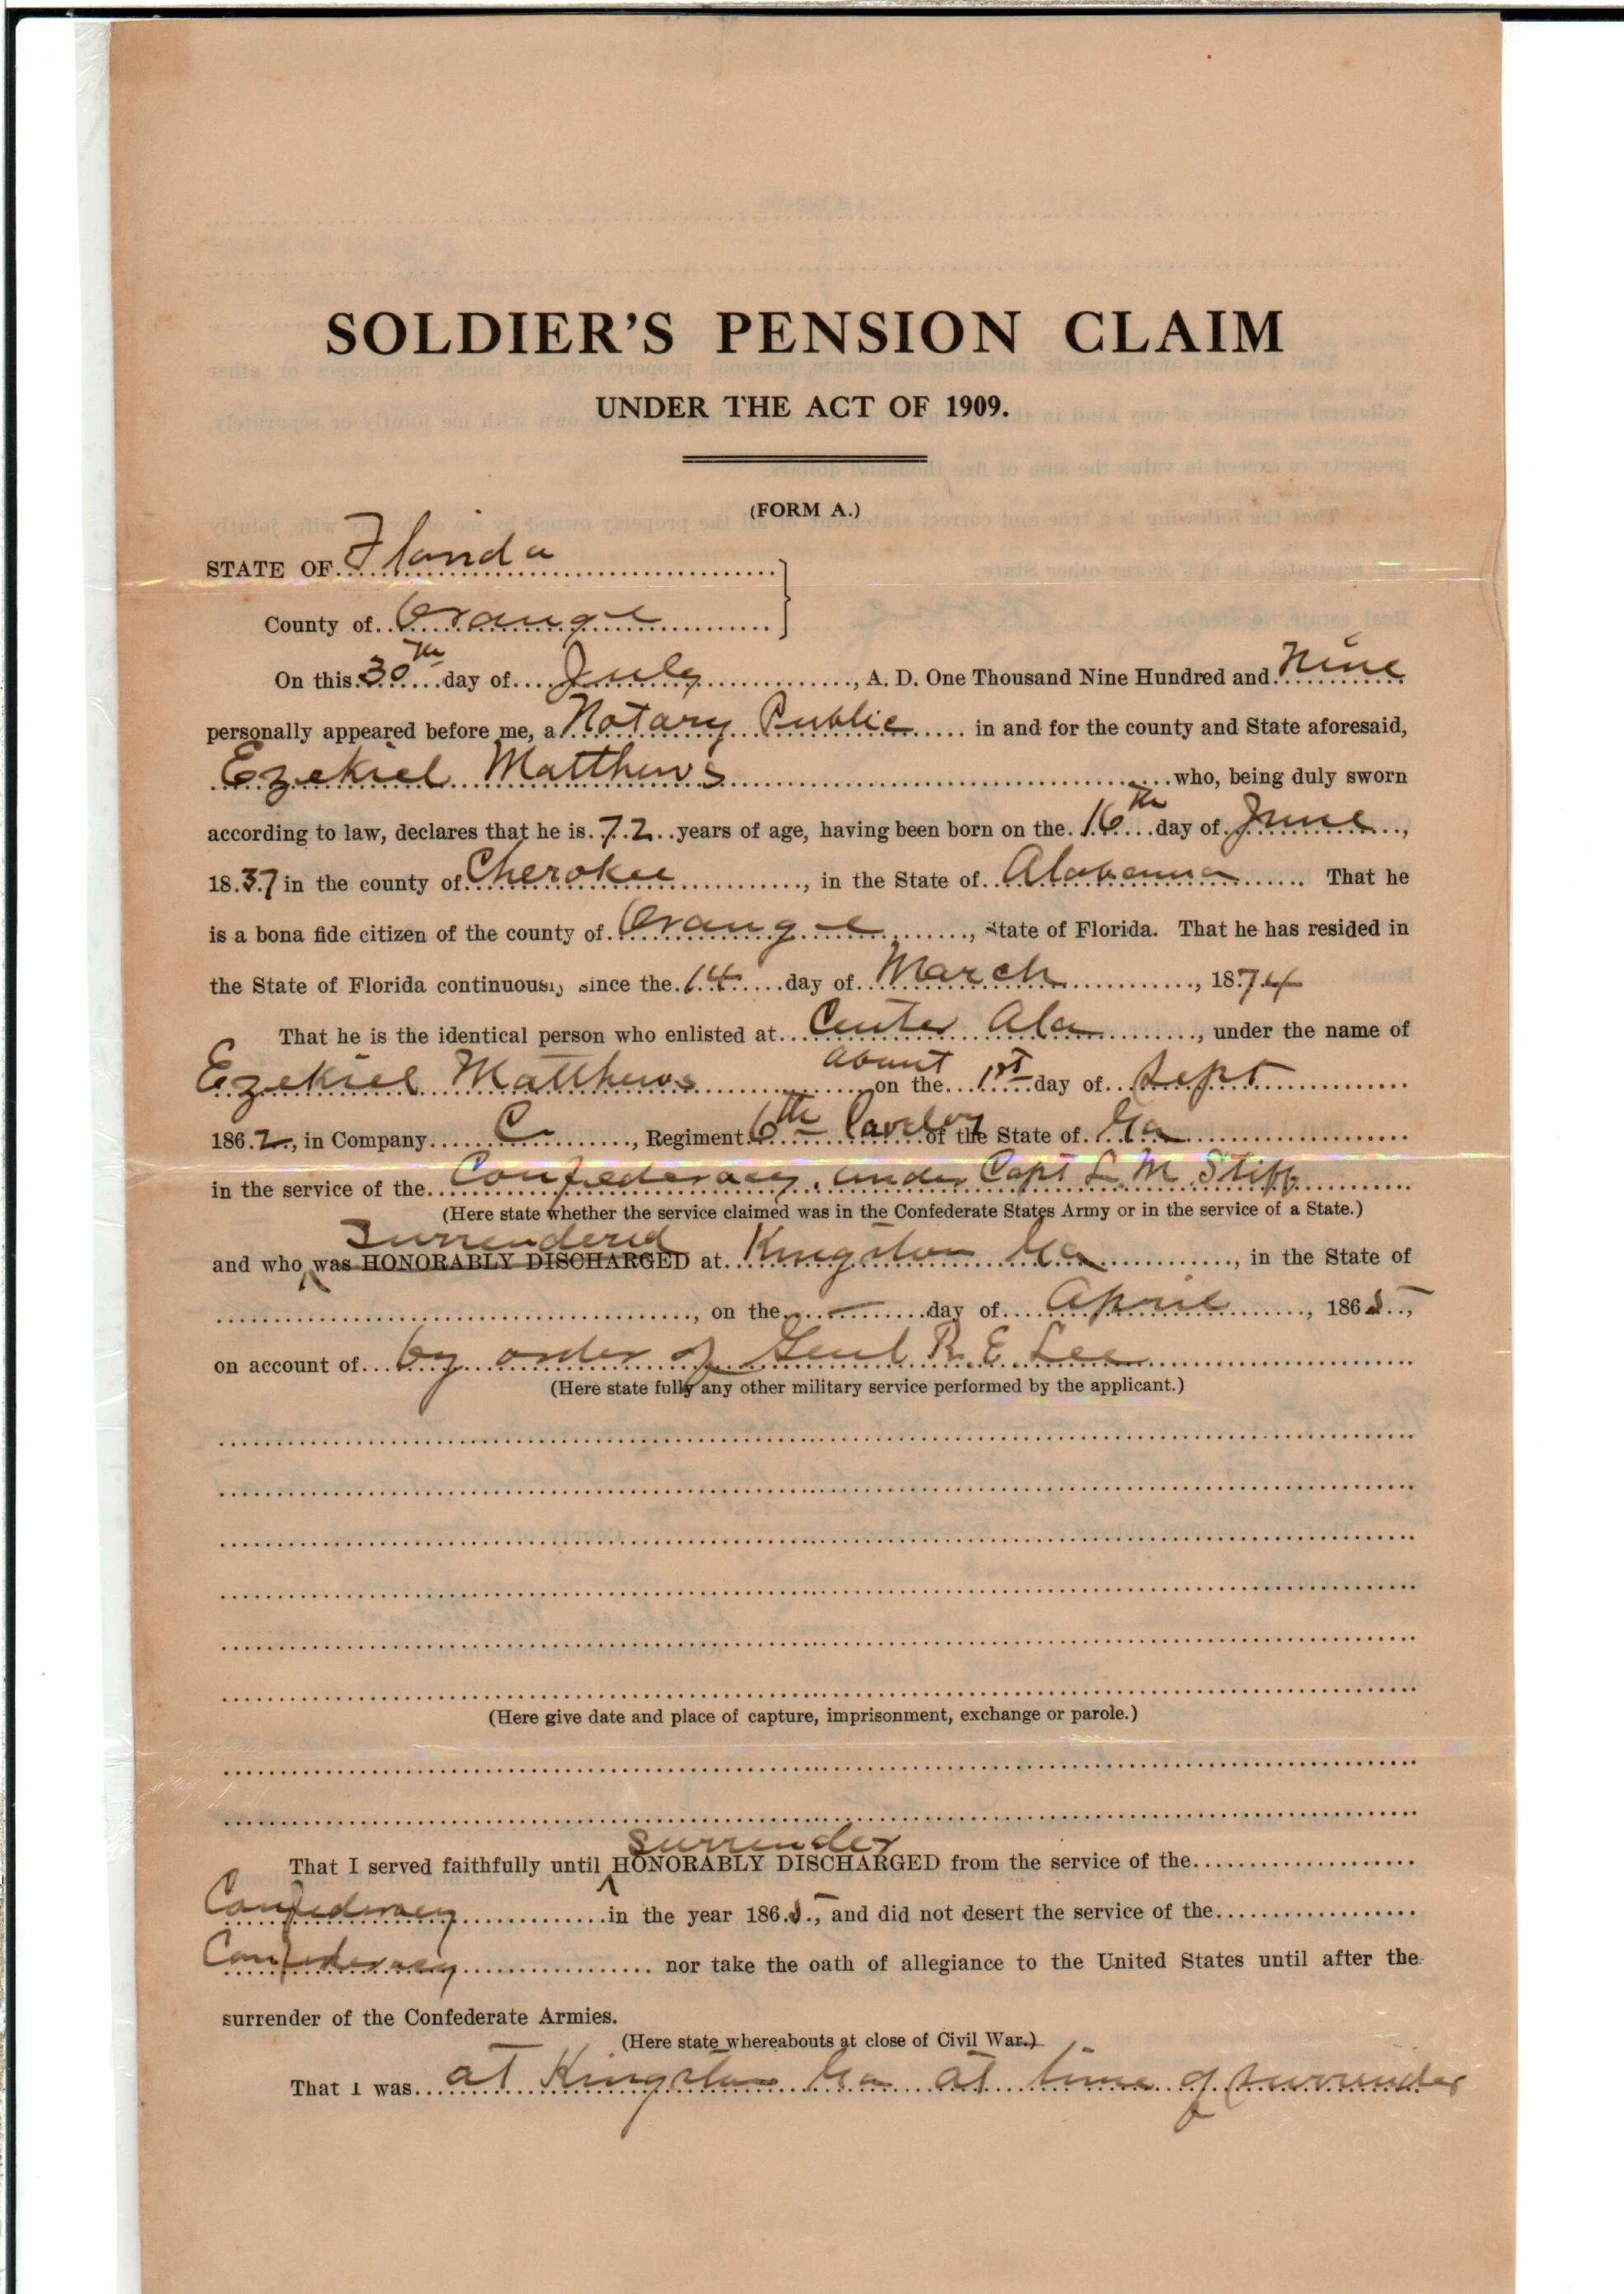 SOLDIER'S PENSION CLAIM
UNDER THE ACT OF 1909.
(FORM A.)
STATE OF Florida
County of Orange
On this 30th day of July, A. D. One Thousand Nine Hundred and Nine
personally appeared before me, a Notary Public in and for the county and State aforesaid,
Ezekiel Matthews who, being duly sworn
according to law, declares that he is 72 years of age, having been born on the 16th day of June,
1837 in the county of Cherokee, in the State of Alabama That he
is a bona fide citizen of the county of Orange, State of Florida. That he has resided in
the State of Florida continuously since the 14 day of March, 1874
That he is the identical person who enlisted at Center Ala, under the name of
about
Ezekiel Matthews on the 1st day of Sept
1862, in Company C, Regiment 6th Cavelry of the State of Ga
in the service of the Confederacy under Capt L. M. Stiff
(Here state whether the service claimed was in the Confederate States Army or in the service of a State.)
Surrenderid
and who was HONORABLY DISCHARGED at Kingston Ga, in the State of
, on the — day of April, 1865,
on account of by order of Genl R. E. Lee
(Here state fully any other military service performed by the applicant.)
(Here give date and place of capture, imprisonment, exchange or parole.)
surrender
That I served faithfully until HONORABLY DISCHARGED from the service of the
Confederacy in the year 1865, and did not desert the service of the
Confederacy nor take the oath of allegiance to the United States until after the
surrender of the Confederate Armies.
(Here state whereabouts at close of Civil War.)
That I was at Kingston Ga at time of surrender